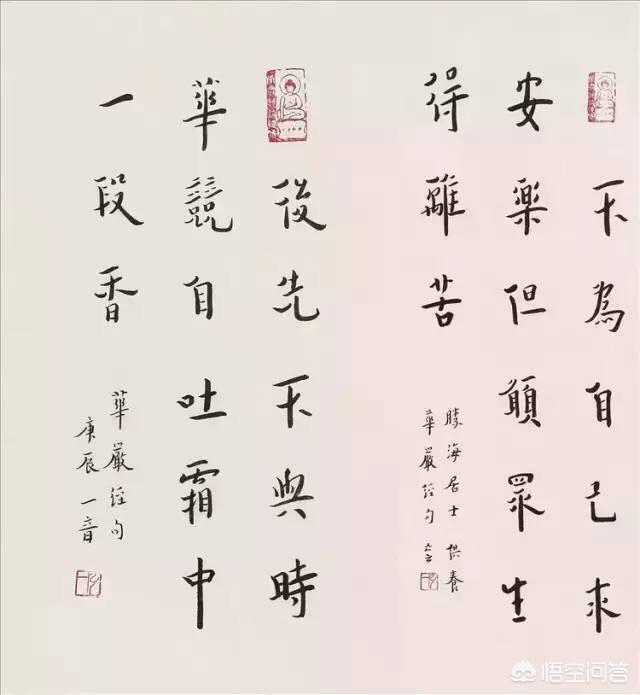 不為自己求
安樂但願眾生
得離苦
勝海居士供養
華嚴經句
後先不與時
華競自吐霜中
一段香
華嚴經句
庚辰一音
悟空问答